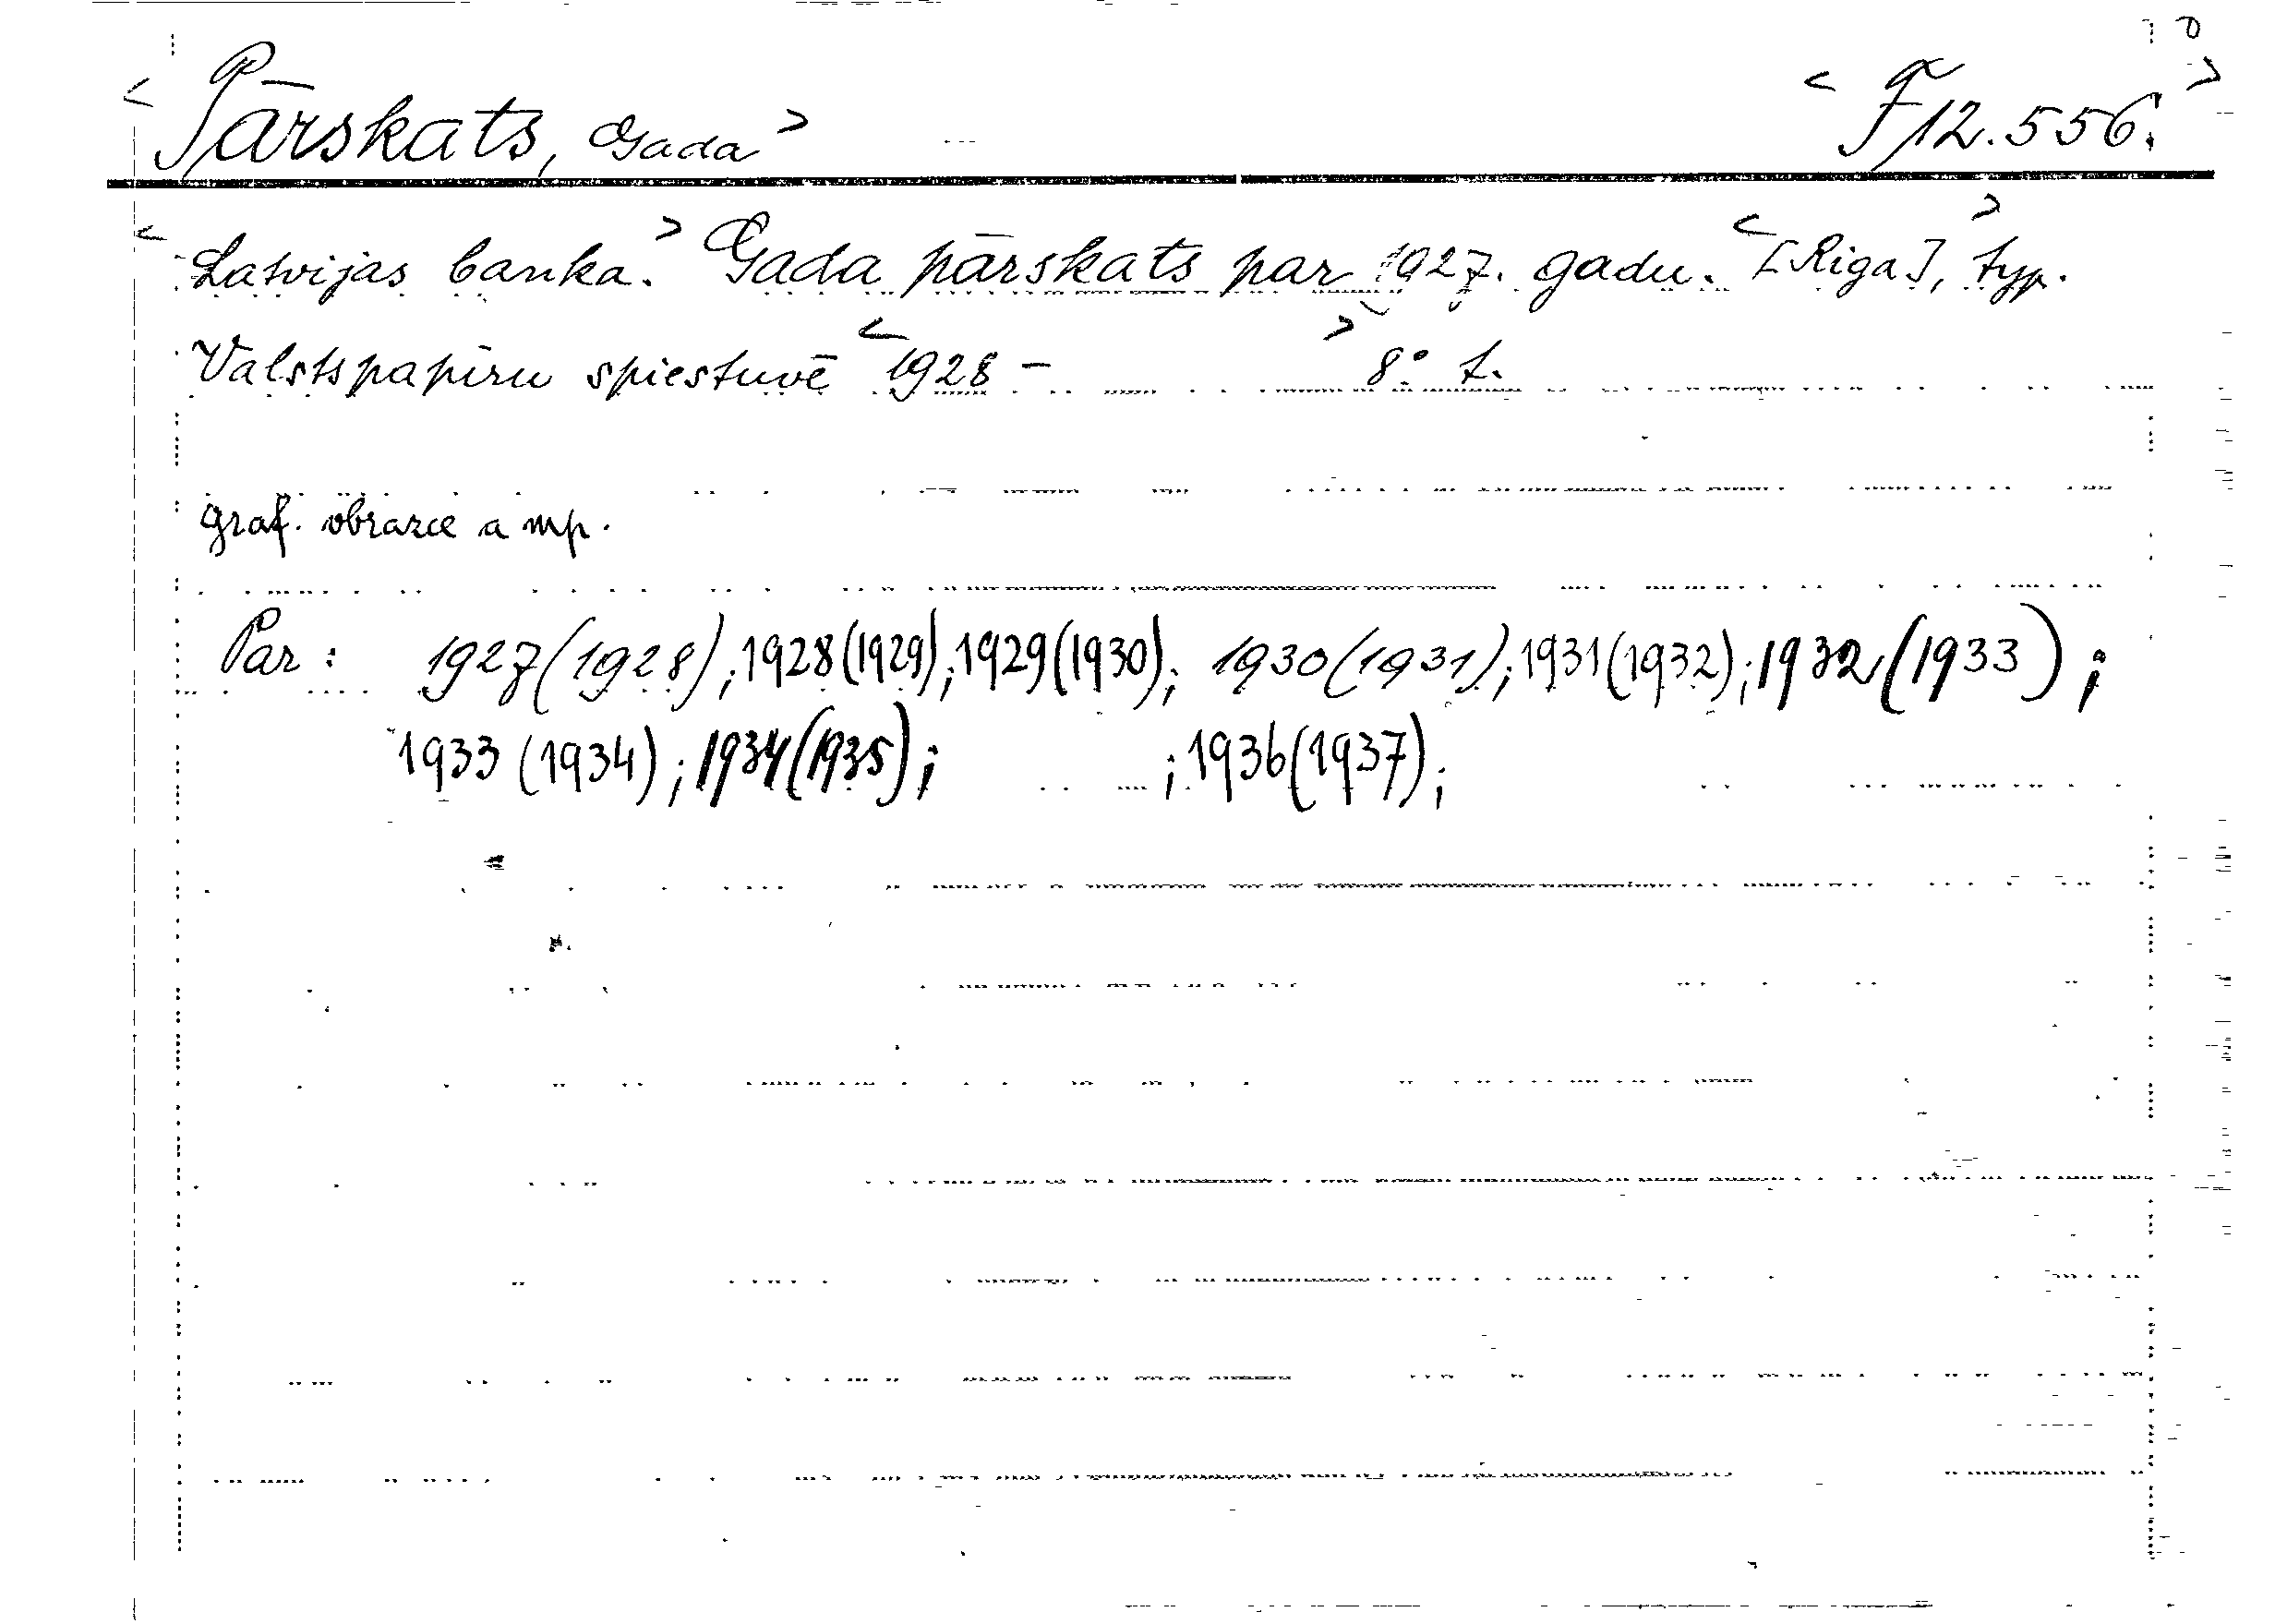 <Pārskats, Gada> <F 12.556.>
<Latvijas banka.> Gada pārskats par 1927. gadu. <[Riga], typ.>
Valstspapīru spiestuvē <1928 - > 8° t.
graf. obrazce a mp.
Par: 1927(1928); 1928(1929); 1929(1930); 1930(1931); 1931(1932); 1932(1933);
1933(1934); 1934(1935); ; 1936(1937);